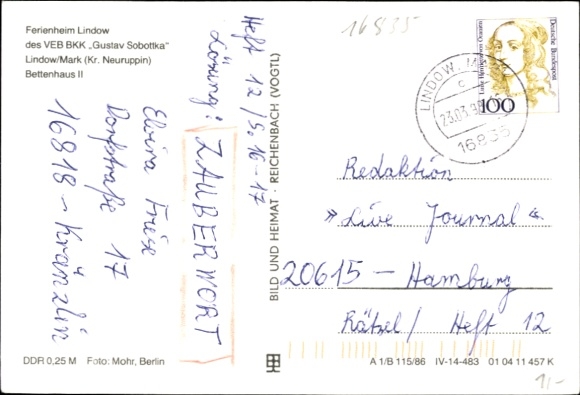 Ferienheim Lindow
des VEB BKK „Gustav Sobottka"
Lindow/Mark (Kr. Neuruppin)
Bettenhaus II
Heft 12 / S. 16-17
Lösung: ZAUBERWORT
Elvira Friese
Dorfstraße 17
16818 - Kränzlin
DDR 0,25 M Foto: Mohr, Berlin
BILD UND HEIMAT · REICHENBACH (VOGTL)
16835
Deutsche Bundespost
100
LINDOW, M
c
23.03.9
16835
Redaktion
»Live Journal«
20615 - Hamburg
Rätsel / Heft 12
A 1/B 115/86 IV-14-483 01 04 11 457 K
1,-